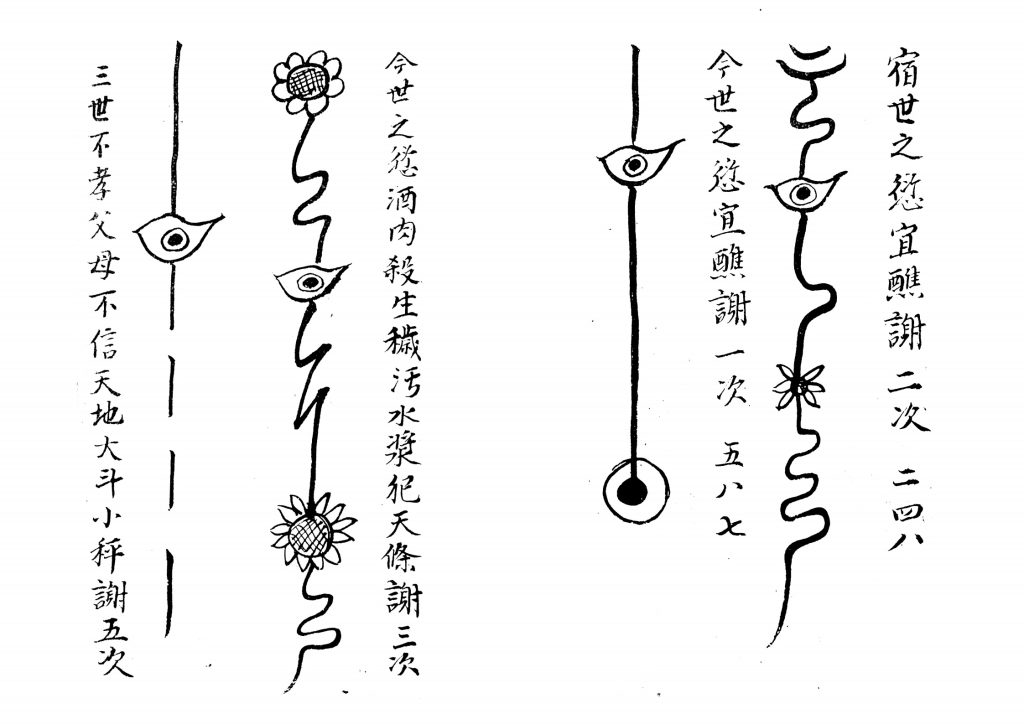 宿世之愆宜醮謝二次 二四八
今世之愆宜醮謝一次 五八七
今世之愆酒肉殺生穢污水漿犯天條謝三次
三世不孝父母不信天地大斗小秤謝五次